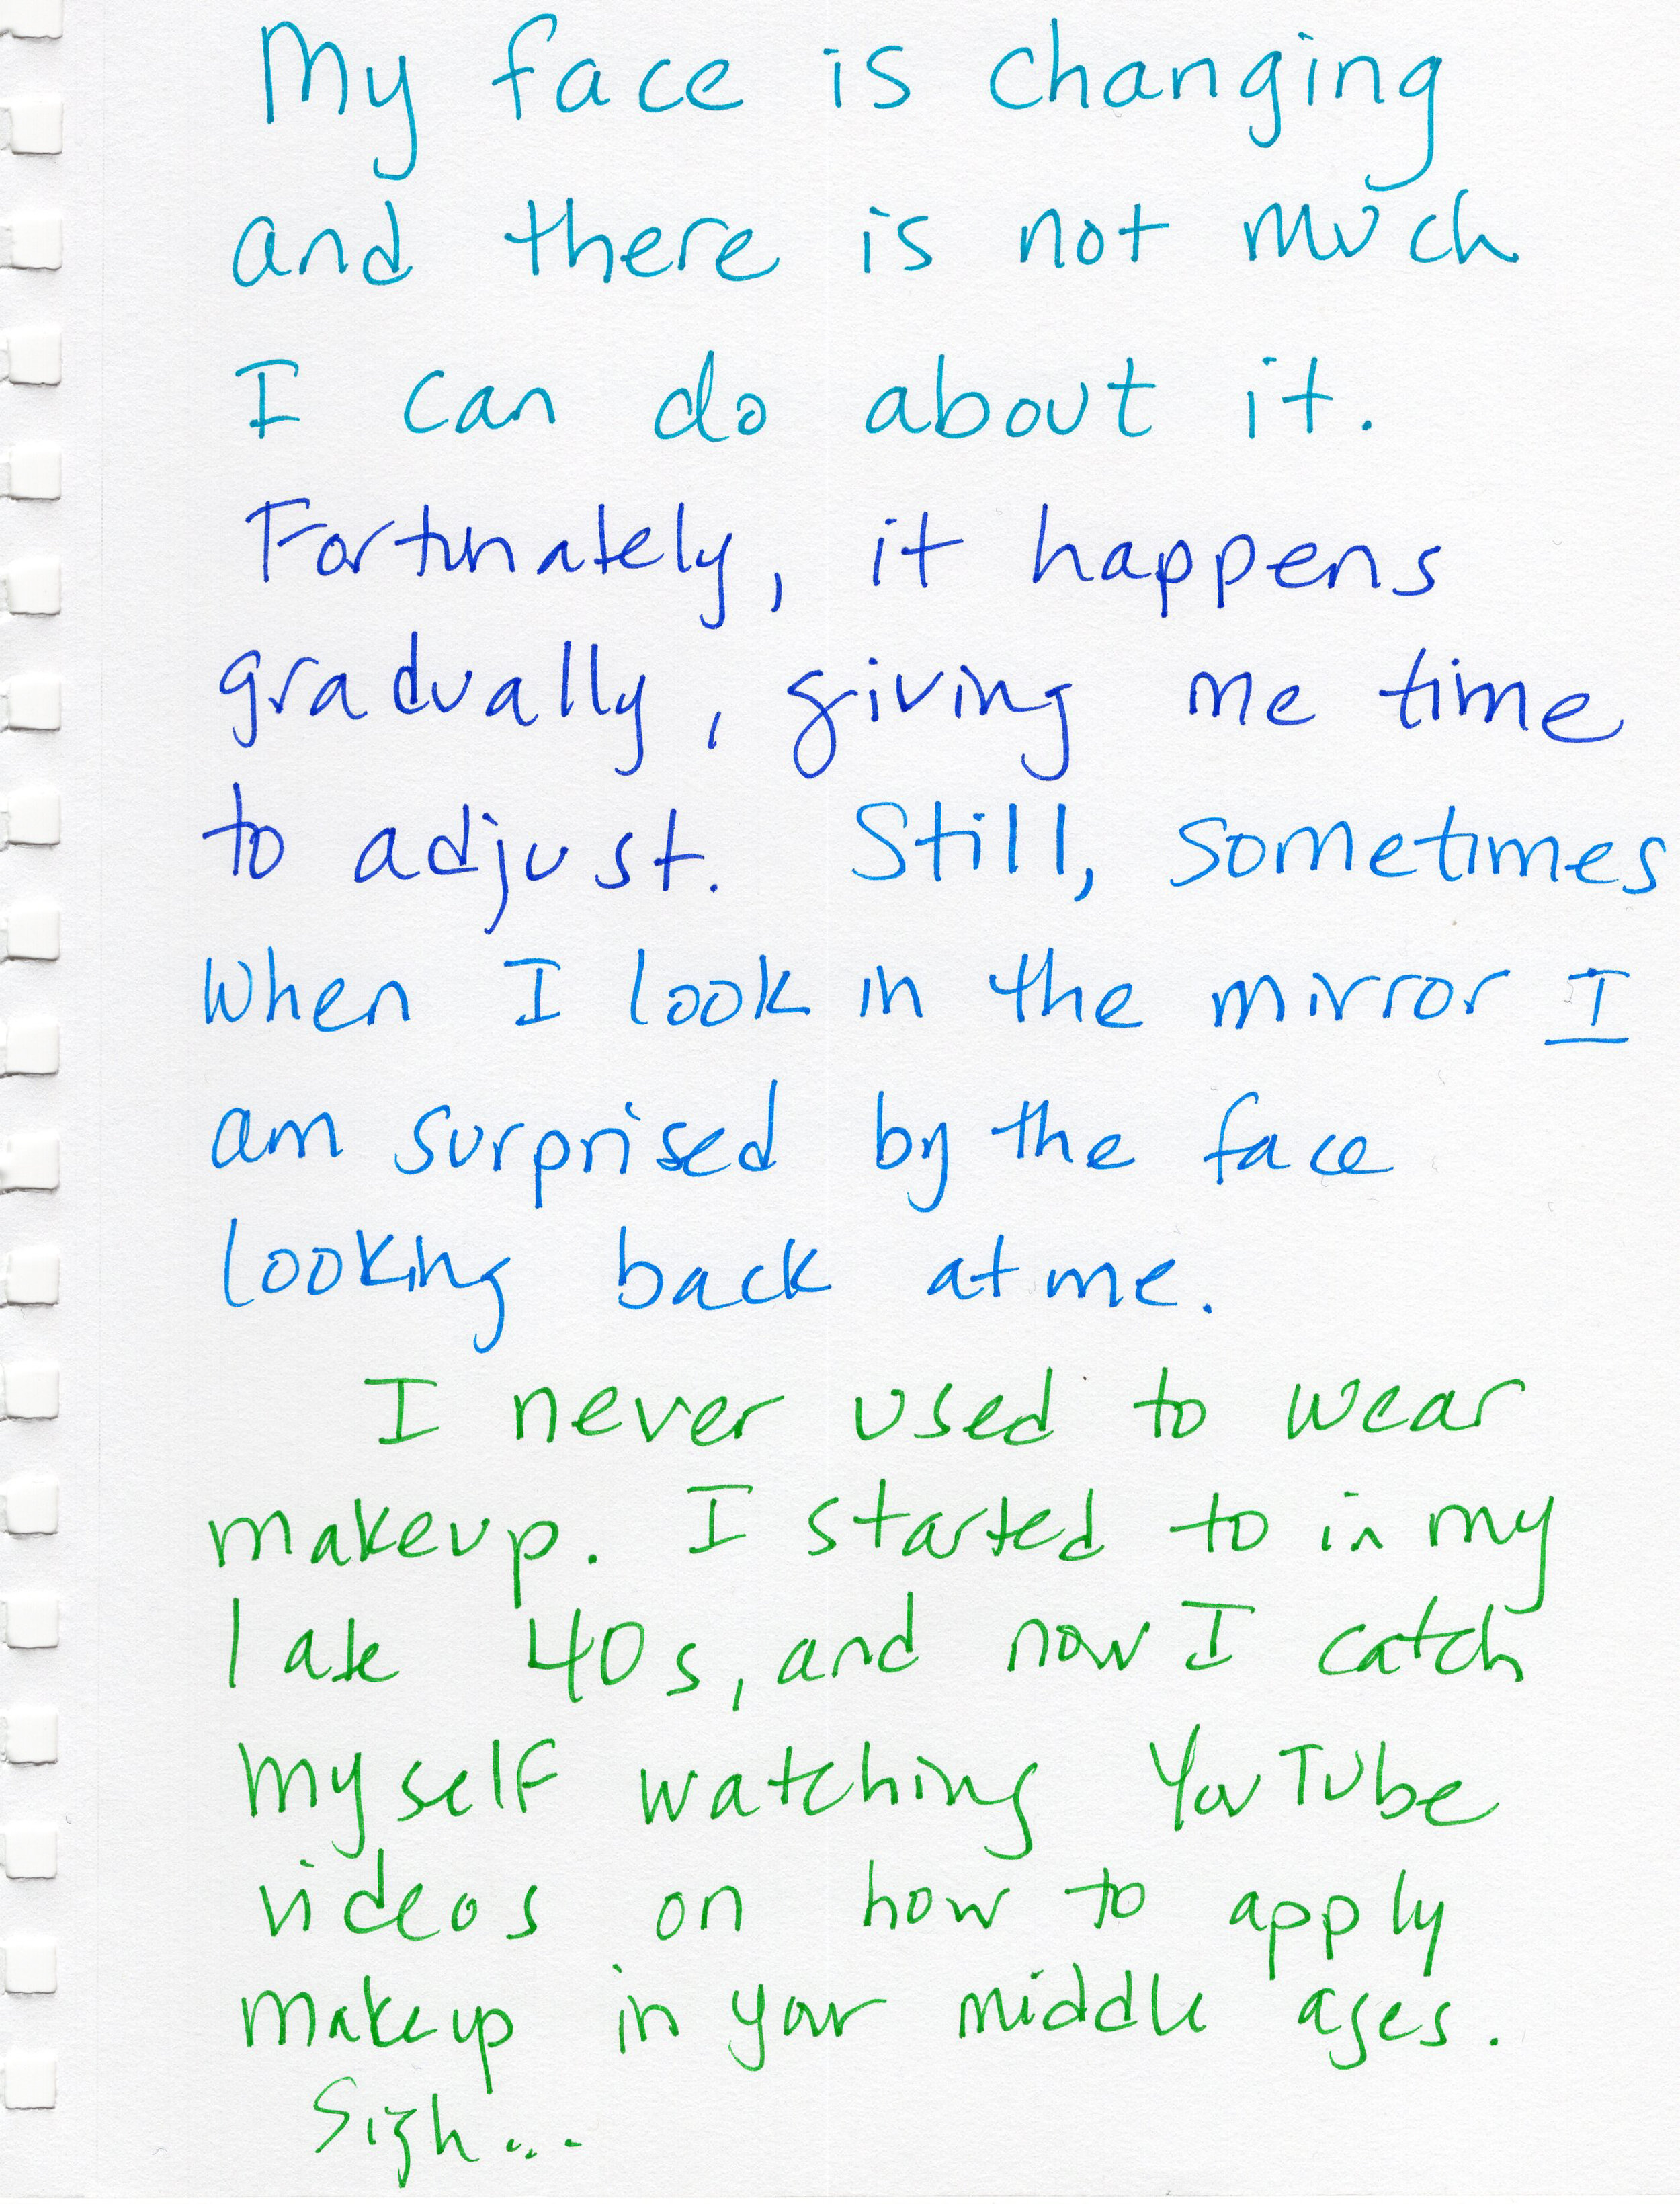 My face is changing
and there is not much
I can do about it.
Fortunately, it happens
gradually, giving me time
to adjust. Still, sometimes
when I look in the mirror I
am surprised by the face
looking back at me.
I never used to wear
makeup. I started to in my
late 40s, and now I catch
myself watching YouTube
videos on how to apply
makeup in your middle ages.
Sigh...